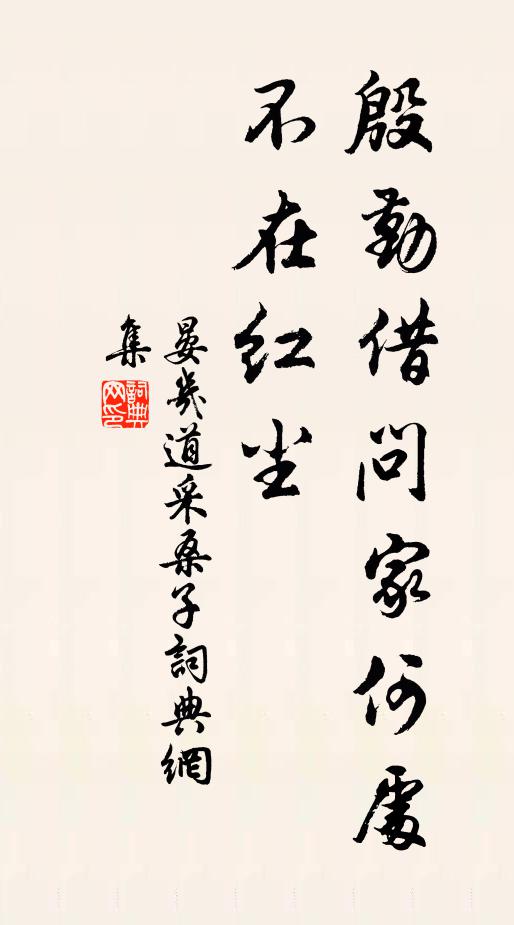 殷勤借问家何處
不在红尘
晏幾道采桑子詞典網
集
詞典网印